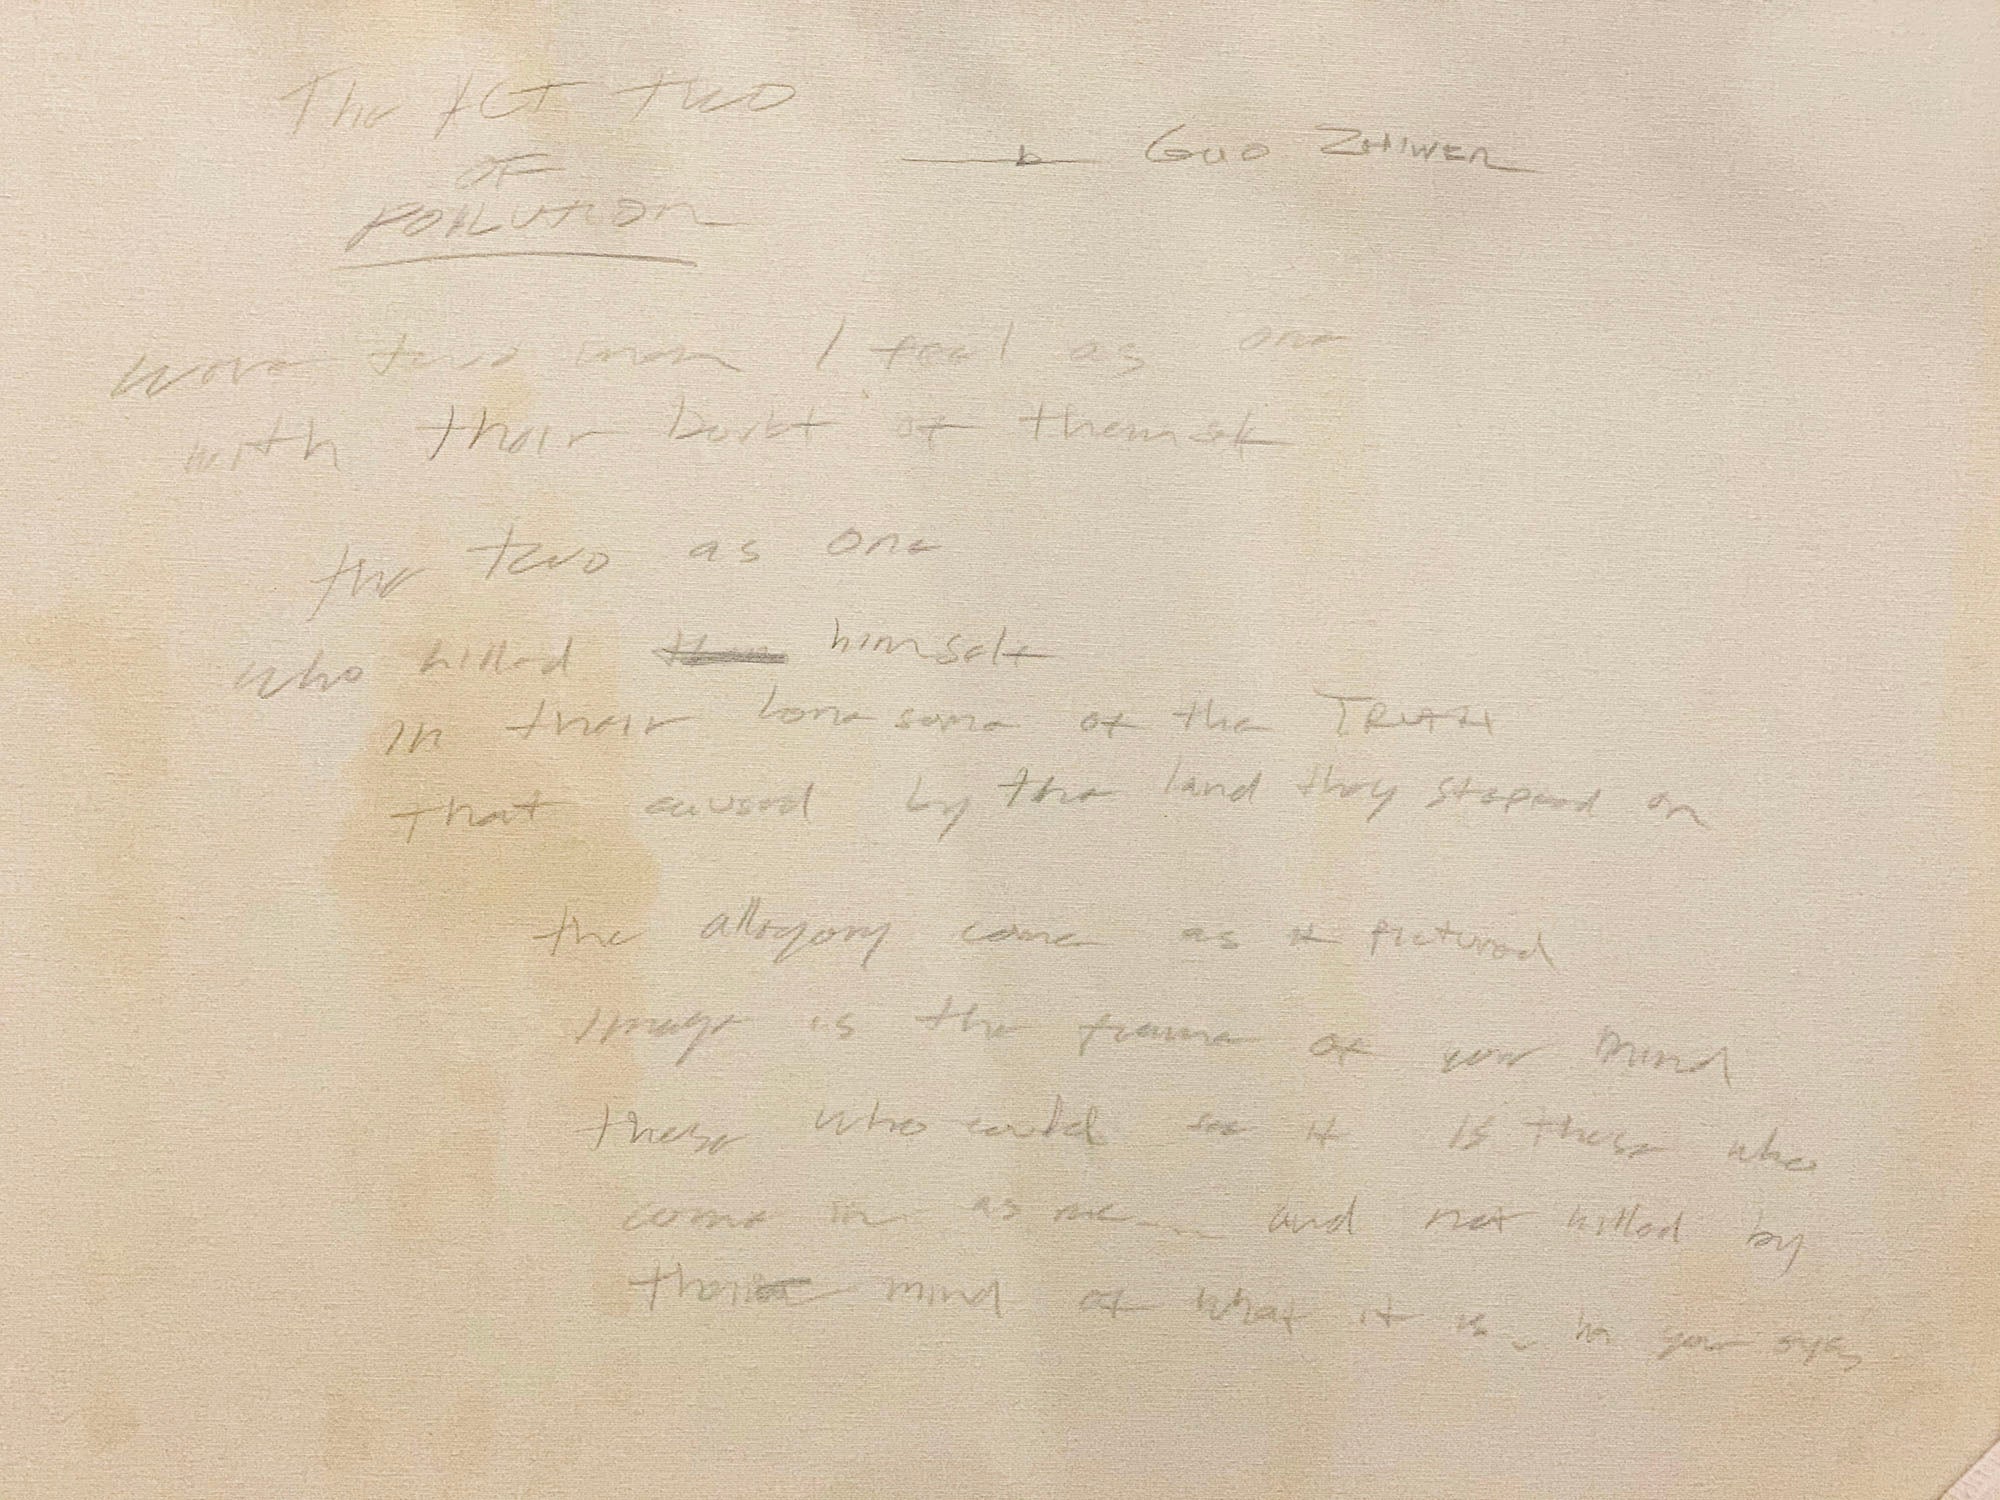 The ACT two
OF
POLLUTION
Guo ZHIWEN
were two men I feel as one
with their Doubt of themself
the two as one
who killed himself
in their lonesome of the TRUTH
that caused by the land they stepped on
the allegory come as it pictured
image is the frame of your mind
these who could see it is those who
come in as me... and not killed by
their mind of what it is - in your eyes